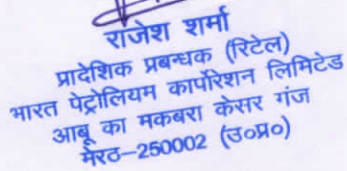 राजेश शर्मा
प्रादेशिक प्रबन्धक (रिटेल)
भारत पेट्रोलियम कार्पोरेशन लिमिटेड
आबू का मकबरा केसर गंज
मेरठ–250002 (उ०प्र०)